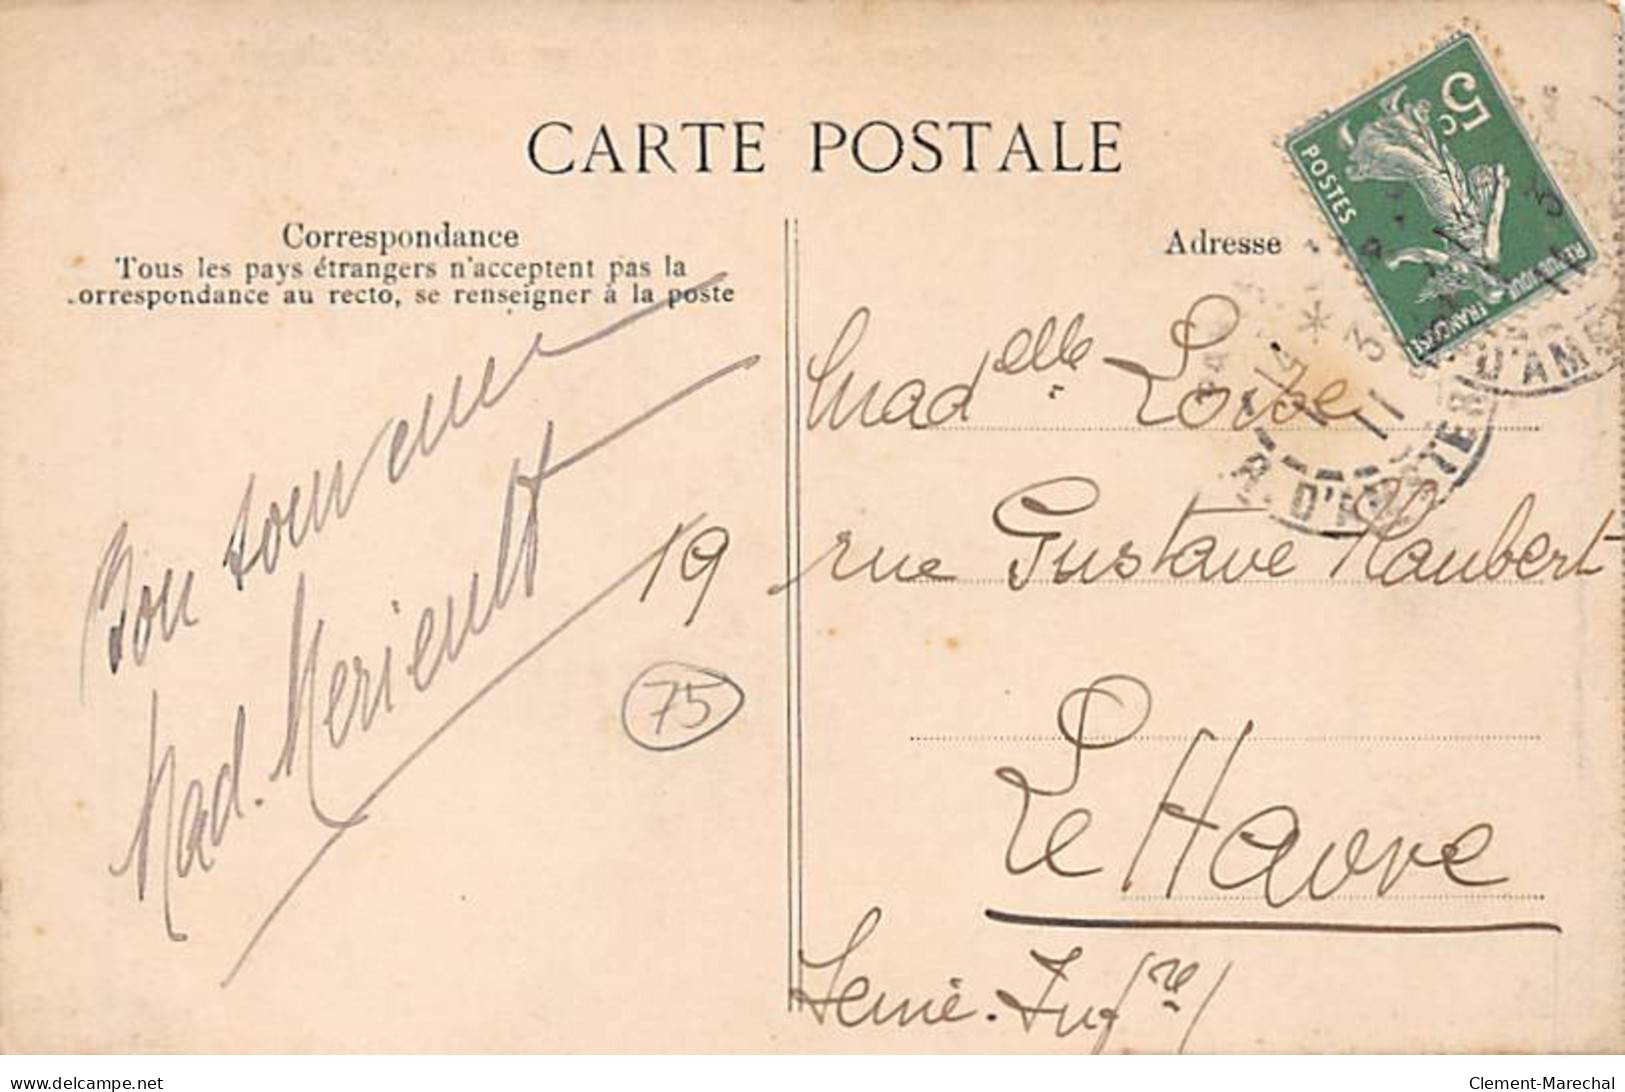 CARTE POSTALE
Correspondance
Tous les pays étrangers n'acceptent pas la
orrespondance au recto, se renseigner à la poste
Bon souvenir
Mad. Merienlt
75
Adresse
5c
POSTES
REPUBLIQUE FRANÇAISE
D'AM
14 * 3
11
R. D'AMSTER
Madelle Loise
19 rue Gustave Flaubert
Le Havre
Seine-Infre
delcampe.net
Clement-Marechal